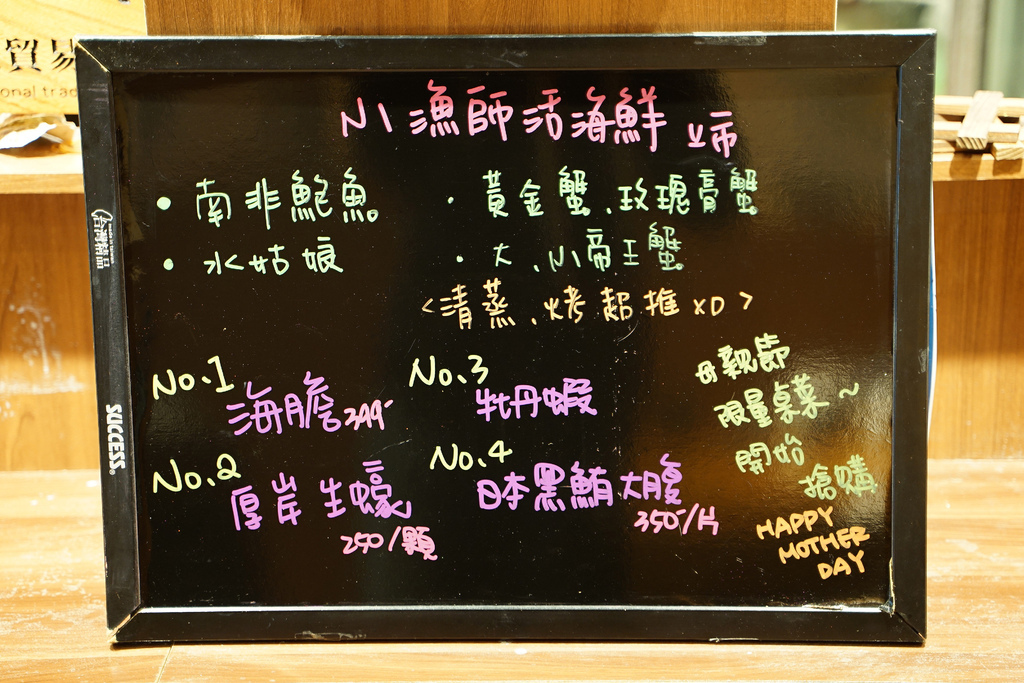 貿易
onal trad
小漁師活海鮮 立市
• 南非鮑魚。
• 水姑娘
• 黃金蟹、玫瑰膏蟹
• 大、小帝王蟹
<清蒸、烤 超推 XD>
No.1
海膽 399-
No.2
厚岸 生蠔
250/顆
No.3
牡丹蝦
No.4
日本黑鮪大腹
350-/片
母親節
限量桌菜~
開始
搶購
HAPPY
MOTHER
DAY
台灣精品
SUCCESS®